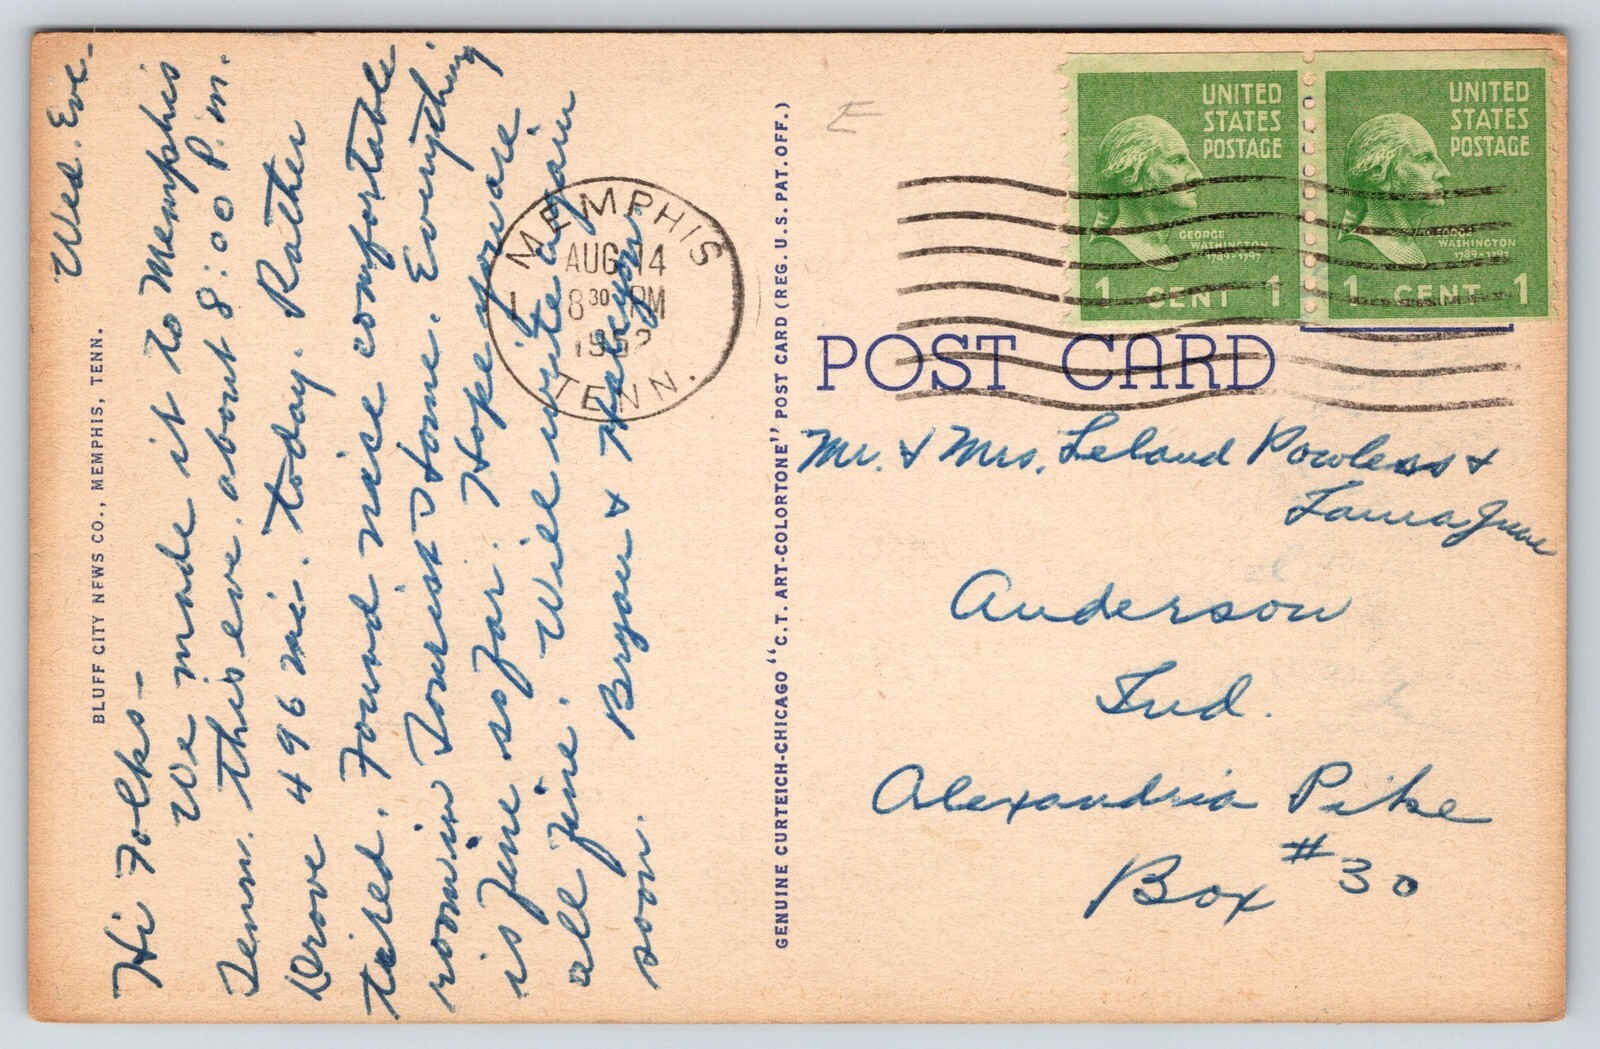 Wed. Eve.
Hi Folks-
We made it to Memphis
Tenn. this eve. about 8:00 P.m.
Drove 496 mi. today. Rather
tired. Found nice comfortable
room in Tourist Home. Everything
is fine so far. Hope you are
all fine. Will write again
soon. Bryon & Halcyon.
BLUFF CITY NEWS CO., MEMPHIS, TENN.
MEMPHIS
AUG 14
8 30 PM
TENN.
1
GENUINE CURTEICH-CHICAGO "C.T. ART-COLORTONE" POST CARD (REG. U.S. PAT. OFF.)
E
UNITED
STATES
POSTAGE
GEORGE
WASHINGTON
1789-1797
1 CENT 1
UNITED
STATES
POSTAGE
GEORGE
WASHINGTON
1789-1797
1 CENT 1
POST CARD
Mr. & Mrs. Leland Powless &
Laura June
Anderson
Ind.
Alexandria Pike
Box #30